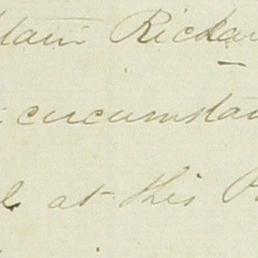 tain Richar
circumstan
at this